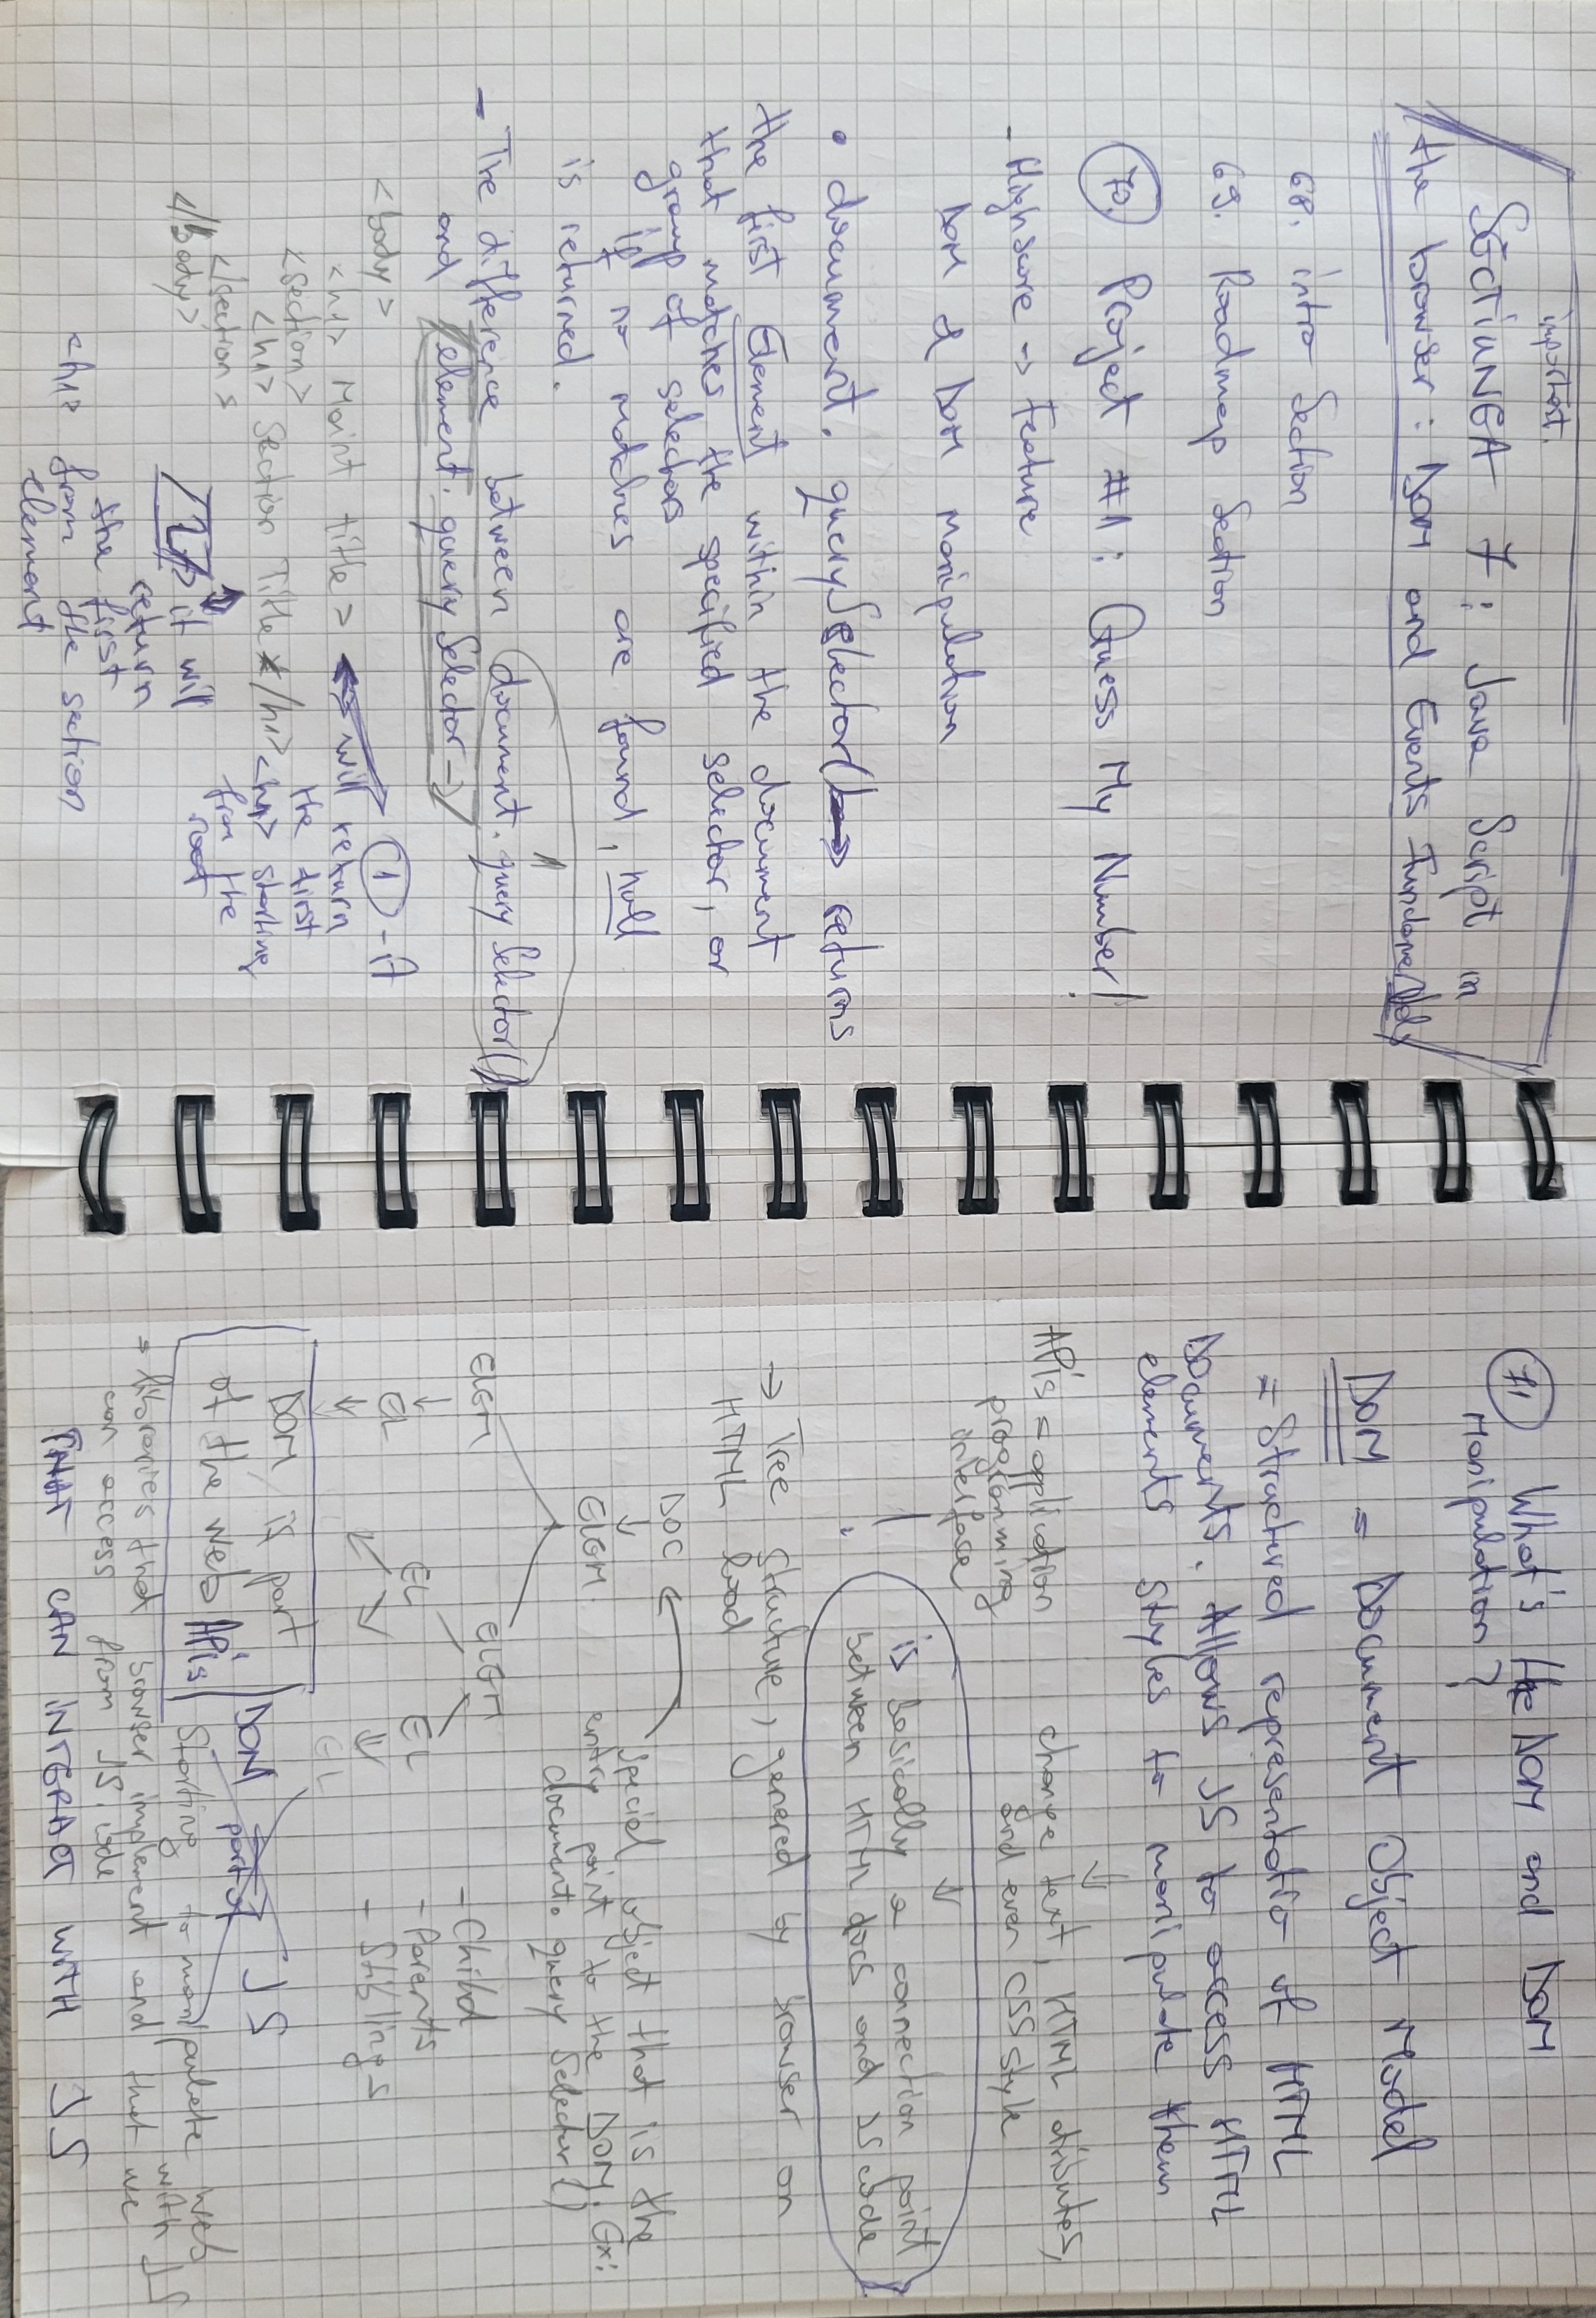 important.
SECTIUNEA 7: Java Script in
the browser: DOM and Events Fundamentals
68. intro Section
69. Roadmap Section
70. Project #1: Guess My Number!
- Highscore -> Feature
DOM & DOM Manipulation
• document. querySelector( -> returns
the first Element within the document
that matches the specified selector, or
group of selectors
if no matches are found, null
is returned.
- The difference between document. query Selector()
and element. query Selector ->
<body>
<h1> Maint title >
<section>
<h1> Section Title </h1>
</section>
</body>
① - it
will return
the first
<h1> starting
from the
root
2 it will
return
the first
<h1> from the section
element
71 What's the DOM and DOM
Manipulation?
DOM = Document Object Model
= Structured representatio of HTML
Documents. Allows JS to access HTML
elements styles to manipulate them
APis = application
programming
interface
change text, HTML atributes,
and even CSS style
is basically a connection point
between HTML docs and JS code
-> Tree structure, genered by browser on
HTML load
DOC
special object that is the
entry point to the DOM. Ex:
document. query Selector()
ELEM
ELEM ELEM
EL EL EL
EL
- Child
- Parents
- Stiblings
DOM is part
of the web APis
DOM JS
part of
Starting to manipulate web
with JS
= libraries that browser implement and that we
can access from JS code
THAT CAN INTERACT WITH JS